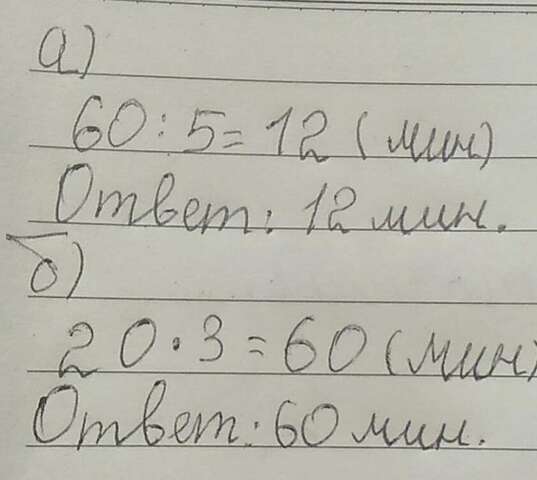 а)
60 : 5 = 12 (мин)
Ответ: 12 мин.
б)
20 · 3 = 60 (мин)
Ответ: 60 мин.